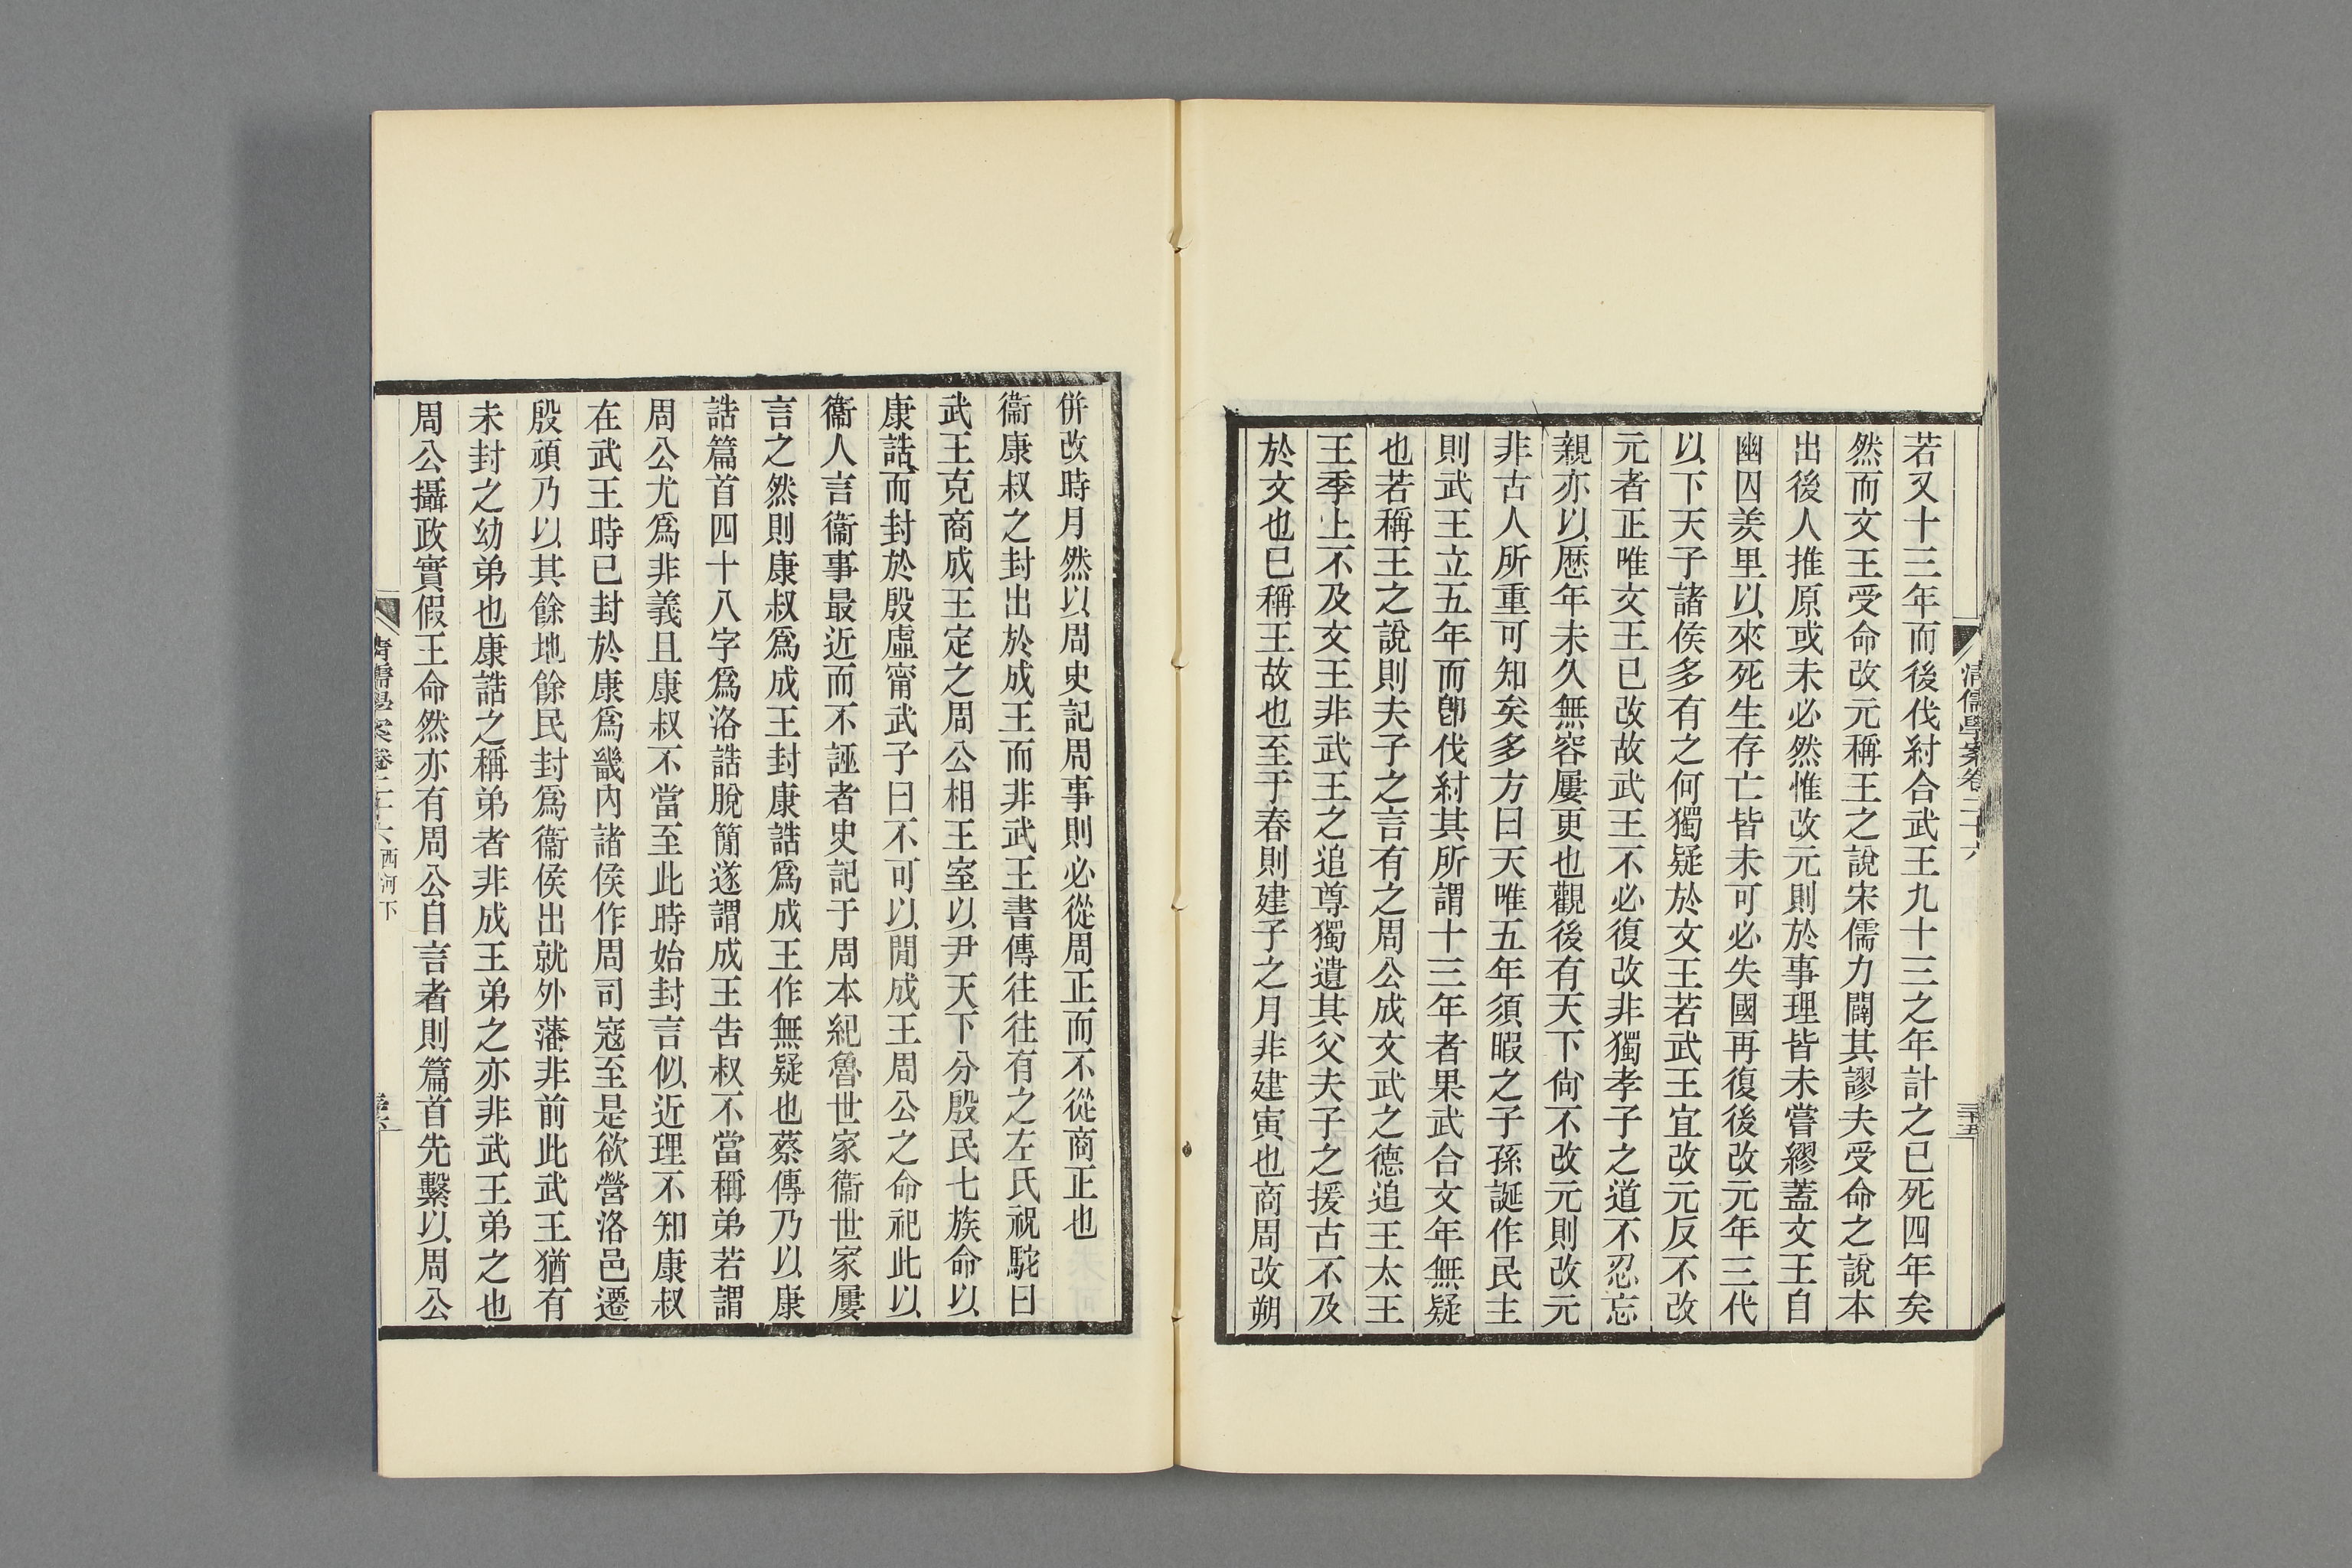 清儒學案卷二十六
三十五
若又十三年而後伐紂合武王九十三之年計之已死四年矣
然而文王受命改元稱王之說宋儒力闢其謬夫受命之說本
出後人推原或未必然惟改元則於事理皆未嘗繆蓋文王自
幽囚羑里以來死生存亡皆未可必失國再復後改元年三代
以下天子諸侯多有之何獨疑於文王若武王宜改元反不改
元者正唯文王已改故武王不必復改非獨孝子之道不忍忘
親亦以歷年未久無容屢更也觀後有天下尙不改元則改元
非古人所重可知矣多方曰天唯五年須暇之子孫誕作民主
則武王立五年而卽伐紂其所謂十三年者果武合文年無疑
也若稱王之說則夫子之言有之周公成文武之德追王太王
王季上不及文王非武王之追尊獨遺其父夫子之援古不及
於文也已稱王故也至于春則建子之月非建寅也商周改朔
併改時月然以周史記周事則必從周正而不從商正也
衞康叔之封出於成王而非武王書傳往往有之左氏祝駝曰
武王克商成王定之周公相王室以尹天下分殷民七族命以
康誥而封於殷虛甯武子曰不可以閒成王周公之命祀此以
衞人言衞事最近而不誣者史記于周本紀魯世家衞世家屢
言之然則康叔爲成王封康誥爲成王作無疑也蔡傳乃以康
誥篇首四十八字爲洛誥脫簡遂謂成王告叔不當稱弟若謂
周公尤爲非義且康叔不當至此時始封言似近理不知康叔
在武王時已封於康爲畿內諸侯作周司寇至是欲營洛邑遷
殷頑乃以其餘地餘民封爲衞侯出就外藩非前此武王猶有
未封之幼弟也康誥之稱弟者非成王弟之亦非武王弟之也
周公攝政實假王命然亦有周公自言者則篇首先繫以周公
清儒學案卷二十六 西河下